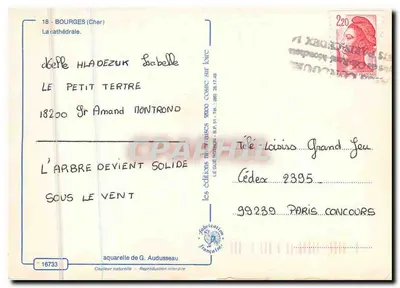 18 - BOURGES (Cher)
La cathédrale.
Melle HLADEZUK Isabelle
LE PETIT TERTRE
18200 St Amand MONTROND
L'ARBRE DEVIENT SOLIDE
SOUS LE VENT
16733
aquarelle de G. Audusseau
Couleur naturelle - Reproduction interdite
les éditions nivernaises 58200 cosne sur loire
fabrication française
2,20
Télé-Loisirs Grand Jeu
Cédex 2395
99239 PARIS CONCOURS